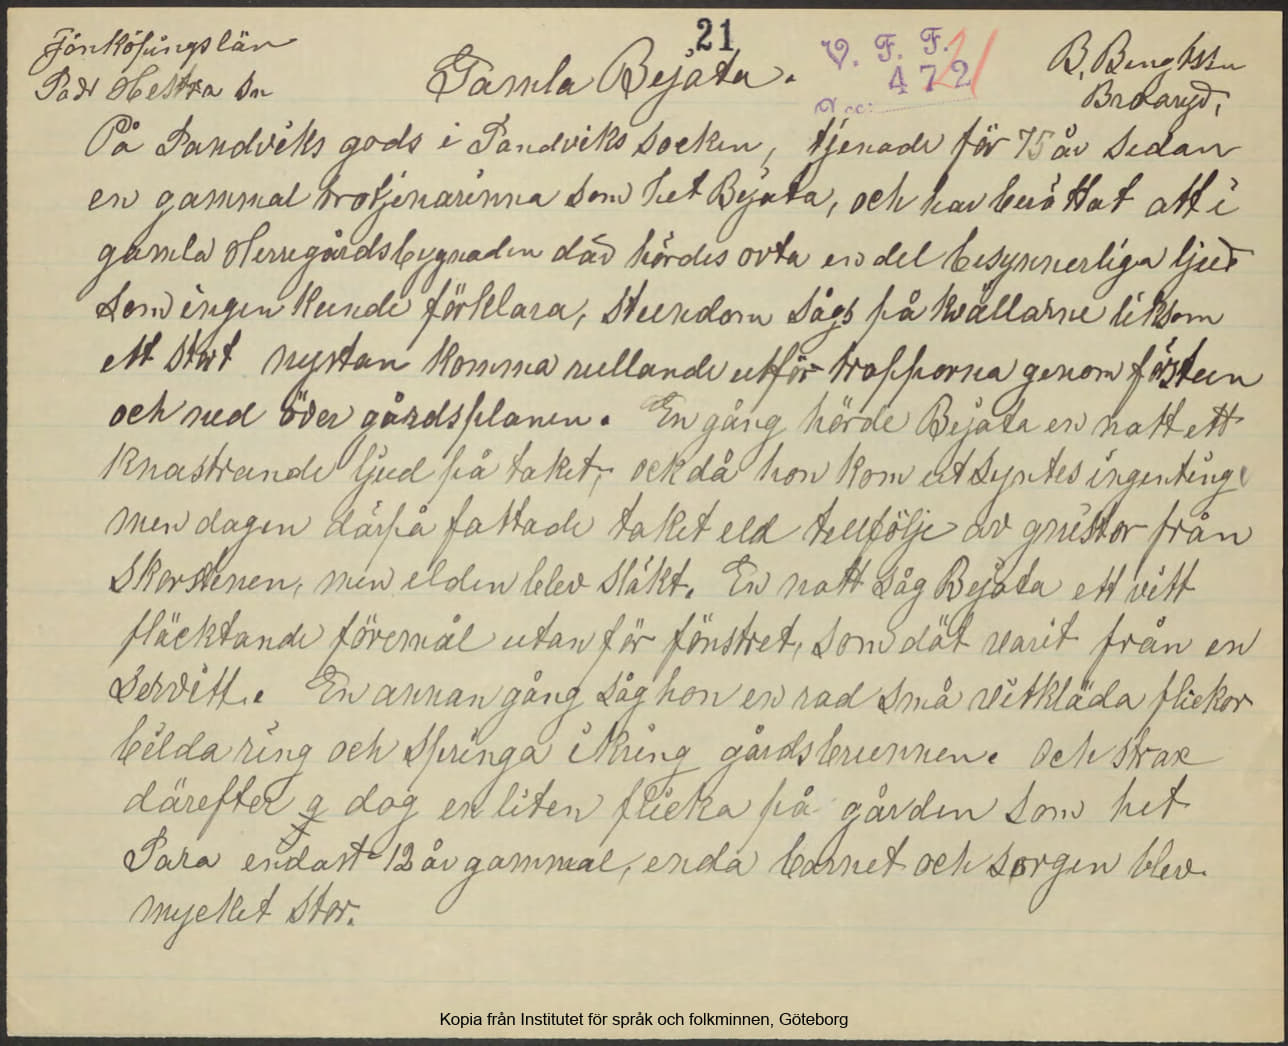 21
Jönköpingslän
Södr Hestra Sn
Gamla Bejata.
V. F. F.
472
21
B. Bengtsson
Brdaryd,
På Sandviks gods i Sandviks socken, tjenade för 75 år sedan
en gammal trotjenarinna som het Bejata, och har berättat att i
gamla Herregårdsbygnaden där hördes ovta en del besynnerliga ljud
som ingen kunde förklara, stundom sågs på kvällarne liksom
ett stort nystan komma rullande utför trapporna genom förstun
och ned över gårdsplanen. En gång hörde Bejata en natt ett
knastrande ljud på taket, ock då hon kom ut syntes ingenting
men dagen därpå fattade taket eld tillfölje av gnistor från
skorstenen, men elden blev släkt. En natt såg Bejata ett vitt
fläcktande föremål utanför fönstret, som dät varit från en
servitt. En annan gång såg hon en rad små vitkläda flickor
bilda ring och springa ikring gårdsbrunnen. och strax
därefter dog en liten flicka på gården som het
Sara endast 12 år gammal, enda barnet och sorgen blev
mycket stor.
Kopia från Institutet för språk och folkminnen, Göteborg